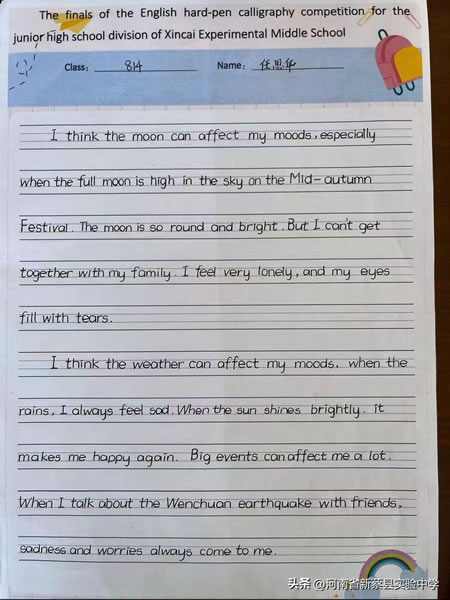 The finals of the English hard-pen calligraphy competition for the
junior high school division of Xincai Experimental Middle School
Class: 814 Name: 任思华
I think the moon can affect my moods, especially
when the full moon is high in the sky on the Mid-autumn
Festival. The moon is so round and bright. But I can't get
together with my family. I feel very lonely, and my eyes
fill with tears.
I think the weather can affect my moods, when the
rains, I always feel sad. When the sun shines brightly. it
makes me happy again. Big events can affect me a lot.
When I talk about the Wenchuan earthquake with friends,
sadness and worries always come to me.
头条 @河南省新蔡县实验中学